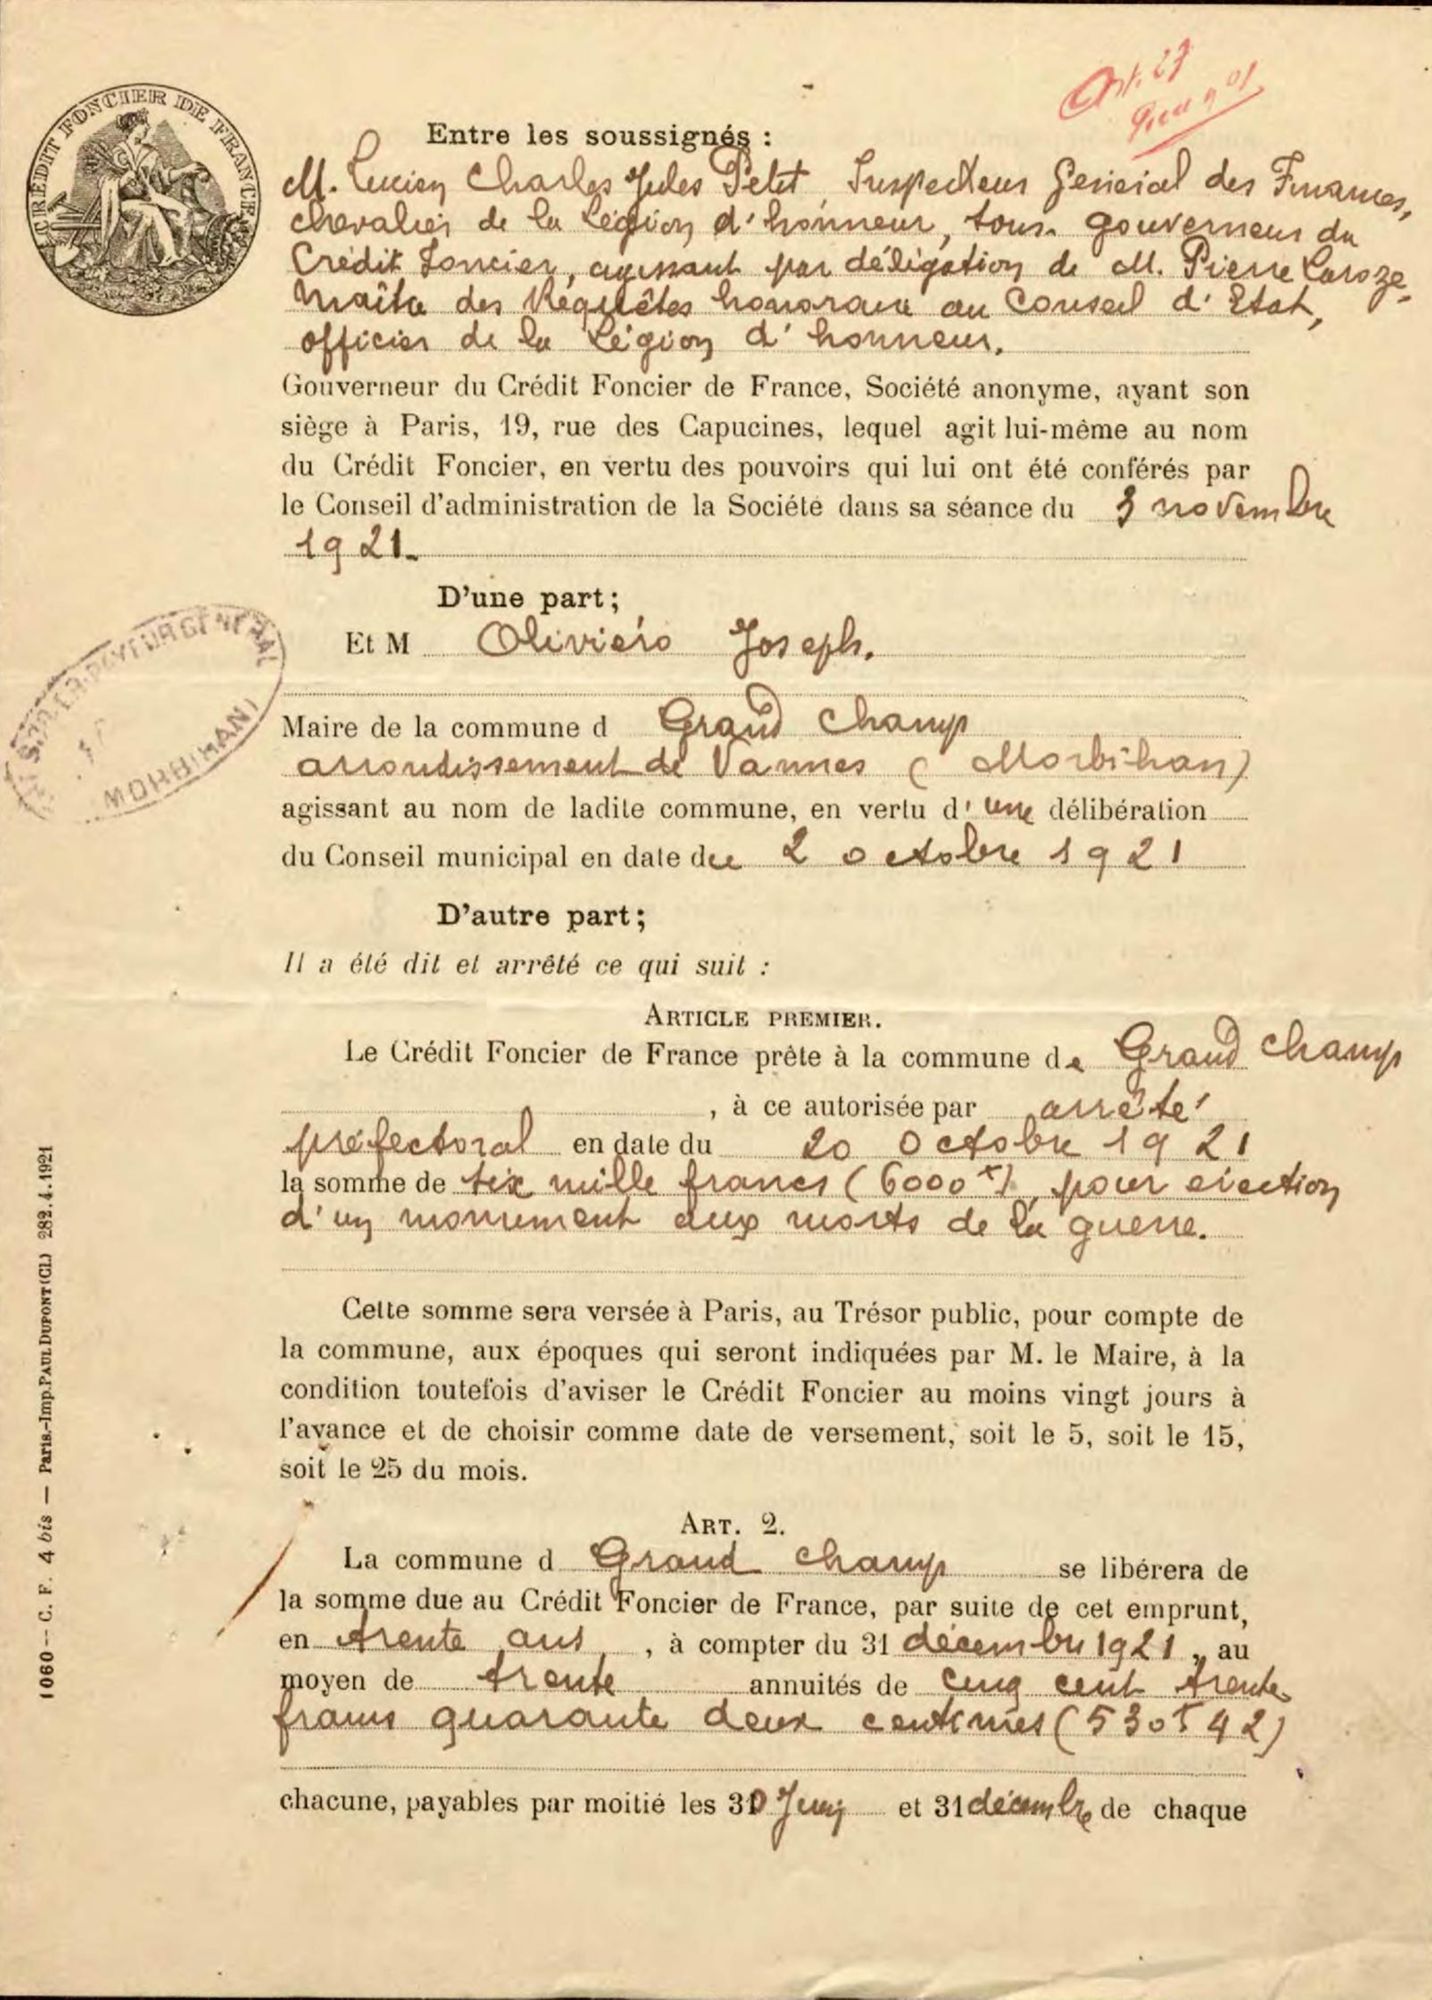 Art. 27
CRÉDIT FONCIER DE FRANCE
Entre les soussignés :
M. Lucien Charles Jules Petit Inspecteur Général des Finances,
chevalier de la Légion d'honneur, sous-gouverneur du
Crédit Foncier, agissant par délégation de M. Pierre Laroze,
Maître des Requêtes honoraire au Conseil d'Etat,
officier de la Légion d'honneur.
Gouverneur du Crédit Foncier de France, Société anonyme, ayant son
siège à Paris, 19, rue des Capucines, lequel agit lui-même au nom
du Crédit Foncier, en vertu des pouvoirs qui lui ont été conférés par
le Conseil d'administration de la Société dans sa séance du 3 novembre
1921.
D'une part;
Et M Oliviéro Joseph.
TRÉSORIER-PAYEUR GÉNÉRAL
MORBIHAN
Maire de la commune d Grand Champ
arrondissement de Vannes (Morbihan)
agissant au nom de ladite commune, en vertu d'une délibération
du Conseil municipal en date du 2 octobre 1921
D'autre part;
Il a été dit et arrêté ce qui suit :
ARTICLE PREMIER.
Le Crédit Foncier de France prête à la commune de Grand Champ
, à ce autorisée par arrêté
préfectoral en date du 20 Octobre 1921
la somme de six mille francs (6000 f), pour érection
d'un monument aux morts de la guerre.
Cette somme sera versée à Paris, au Trésor public, pour compte de
la commune, aux époques qui seront indiquées par M. le Maire, à la
condition toutefois d'aviser le Crédit Foncier au moins vingt jours à
l'avance et de choisir comme date de versement, soit le 5, soit le 15,
soit le 25 du mois.
ART. 2.
La commune d Grand Champ se libérera de
la somme due au Crédit Foncier de France, par suite de cet emprunt,
en trente ans , à compter du 31 décembre 1921, au
moyen de trente annuités de cinq cent trente
francs quarante deux centimes (530f 42)
chacune, payables par moitié les 30 Juin et 31 décembre de chaque
1060 -- C. F. 4 bis — Paris.-Imp. PAUL DUPONT (Cl.) 282.4.1921